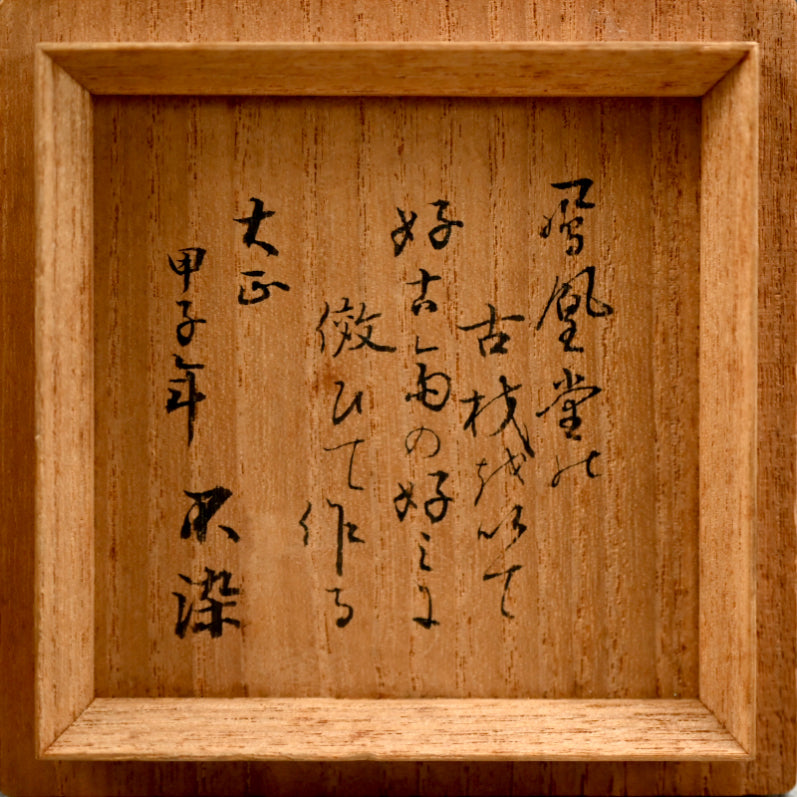 鳳凰堂の
古材を以て
好古斎の好みに
倣ひて作る
大正
甲子年
不染